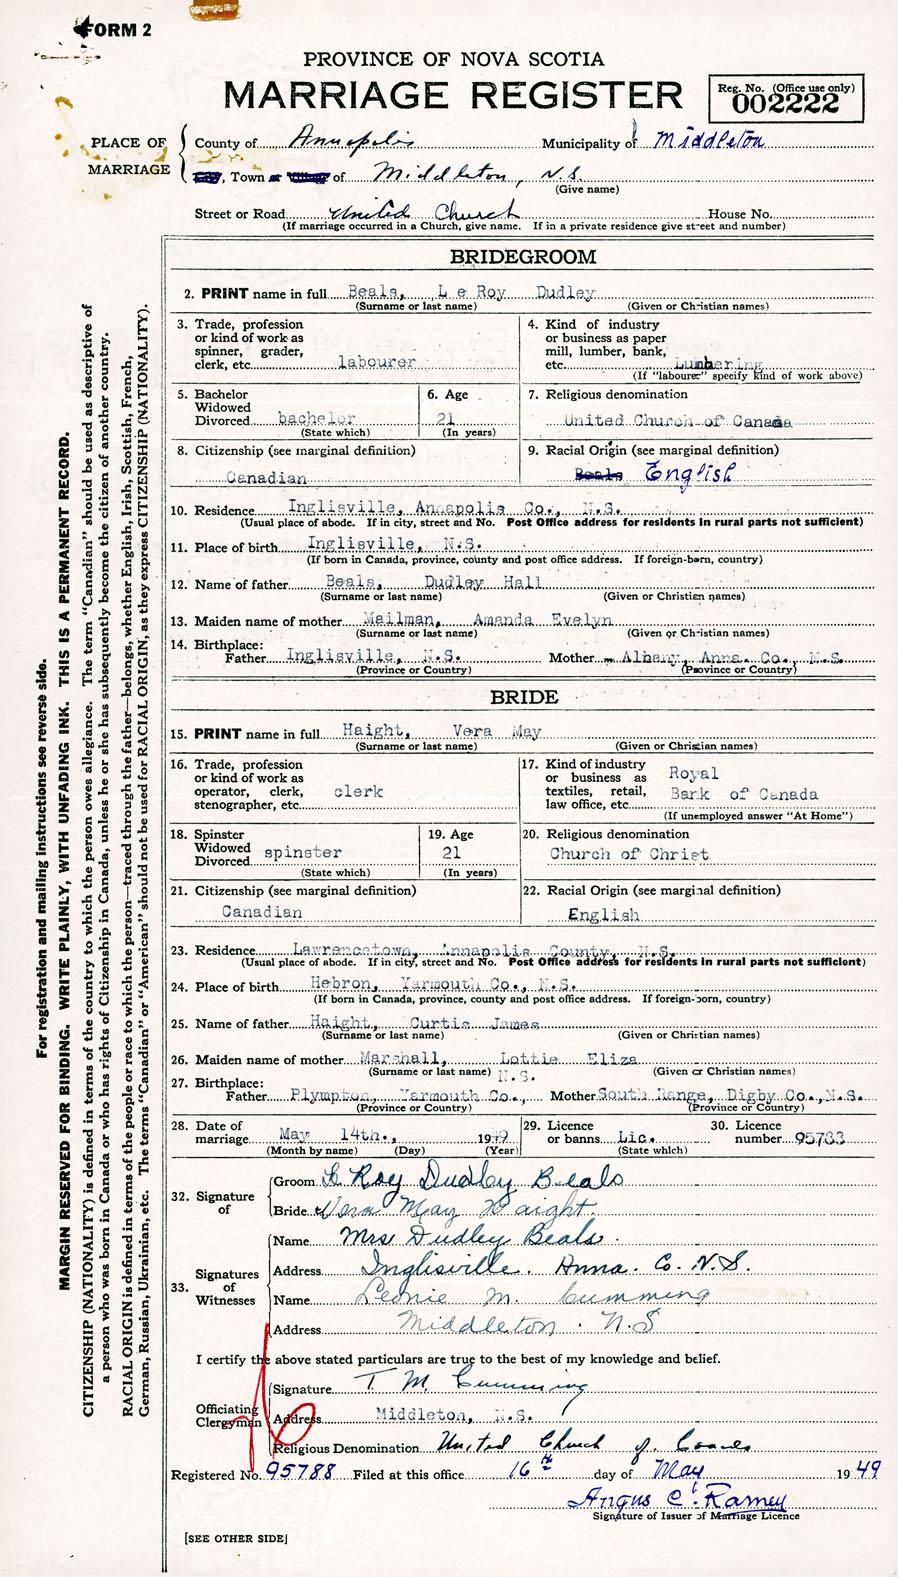 FORM 2
PROVINCE OF NOVA SCOTIA
MARRIAGE REGISTER
Reg. No. (Office use only)
002222
PLACE OF MARRIAGE
County of Annapolis Municipality of Middleton
City, Town or Village of Middleton, N.S.
(Give name)
Street or Road United Church House No.
(If marriage occurred in a Church, give name. If in a private residence give street and number)
BRIDEGROOM
2. PRINT name in full Beals, Le Roy Dudley
(Surname or last name) (Given or Christian names)
3. Trade, profession or kind of work as spinner, grader, clerk, etc. labourer
4. Kind of industry or business as paper mill, lumber, bank, etc. Lumbering
(If "labourer" specify kind of work above)
5. Bachelor Widowed Divorced bachelor
(State which)
6. Age 21
(In years)
7. Religious denomination
United Church of Canada
8. Citizenship (see marginal definition)
Canadian
9. Racial Origin (see marginal definition)
Beals English
10. Residence Inglisville, Annapolis Co., N.S.
(Usual place of abode. If in city, street and No. Post Office address for residents in rural parts not sufficient)
11. Place of birth Inglisville, N.S.
(If born in Canada, province, county and post office address. If foreign-born, country)
12. Name of father Beals, Dudley Hall
(Surname or last name) (Given or Christian names)
13. Maiden name of mother Mailman, Amanda Evelyn
(Surname or last name) (Given or Christian names)
14. Birthplace:
Father Inglisville, N.S. Mother Albany, Anna. Co., N.S.
(Province or Country) (Province or Country)
BRIDE
15. PRINT name in full Haight, Vera May
(Surname or last name) (Given or Christian names)
16. Trade, profession or kind of work as operator, clerk, stenographer, etc. clerk
17. Kind of industry or business as textiles, retail, law office, etc. Royal Bank of Canada
(If unemployed answer "At Home")
18. Spinster Widowed Divorced spinster
(State which)
19. Age 21
(In years)
20. Religious denomination
Church of Christ
21. Citizenship (see marginal definition)
Canadian
22. Racial Origin (see marginal definition)
English
23. Residence Lawrencetown, Annapolis County, N.S.
(Usual place of abode. If in city, street and No. Post Office address for residents in rural parts not sufficient)
24. Place of birth Hebron, Yarmouth Co., N.S.
(If born in Canada, province, county and post office address. If foreign-born, country)
25. Name of father Haight, Curtis James
(Surname or last name) (Given or Christian names)
26. Maiden name of mother Marshall, Lottie Eliza
(Surname or last name) (Given or Christian names)
27. Birthplace: N.S.
Father Plympton, Yarmouth Co., Mother South Range, Digby Co., N.S.
(Province or Country) (Province or Country)
28. Date of marriage May 14th., 1949
(Month by name) (Day) (Year)
29. Licence or banns Lic.
(State which)
30. Licence number 95788
32. Signature of
Groom Le Roy Dudley Beals
Bride Vera May Haight
33. Signatures of Witnesses
Name Mrs Dudley Beals.
Address Inglisville. Anna. Co. N.S.
Name Leonie M. Cumming
Address Middleton. N.S
I certify the above stated particulars are true to the best of my knowledge and belief.
Officiating Clergyman
Signature T. M. Cumming
Address Middleton, N.S.
Religious Denomination United Church of Canada
Registered No. 95788 Filed at this office 16th day of May 1949
Angus C. Ramey
Signature of Issuer of Marriage Licence
[SEE OTHER SIDE]
For registration and mailing instructions see reverse side.
MARGIN RESERVED FOR BINDING. WRITE PLAINLY, WITH UNFADING INK. THIS IS A PERMANENT RECORD.
CITIZENSHIP (NATIONALITY) is defined in terms of the country to which the person owes allegiance. The term "Canadian" should be used as descriptive of
a person who was born in Canada or who has rights of Citizenship in Canada, unless he or she has subsequently become the citizen of another country.
RACIAL ORIGIN is defined in terms of the people or race to which the person—traced through the father—belongs, whether English, Irish, Scottish, French,
German, Russian, Ukrainian, etc. The terms "Canadian" or "American" should not be used for RACIAL ORIGIN, as they express CITIZENSHIP (NATIONALITY).